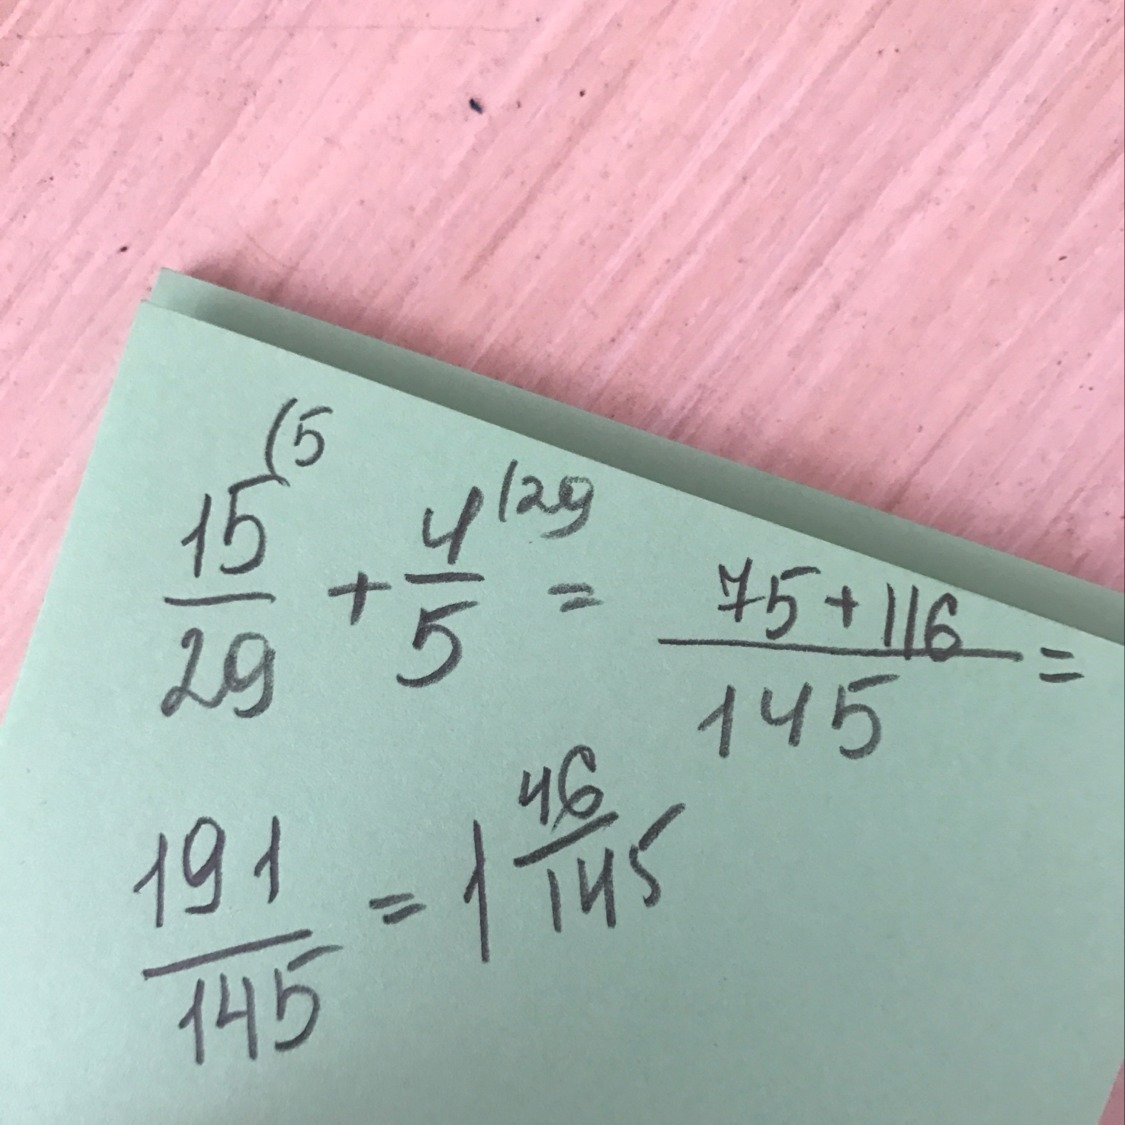 15/29 (5 + 4/5 (29 = 75+116/145 =
191/145 = 1 46/145